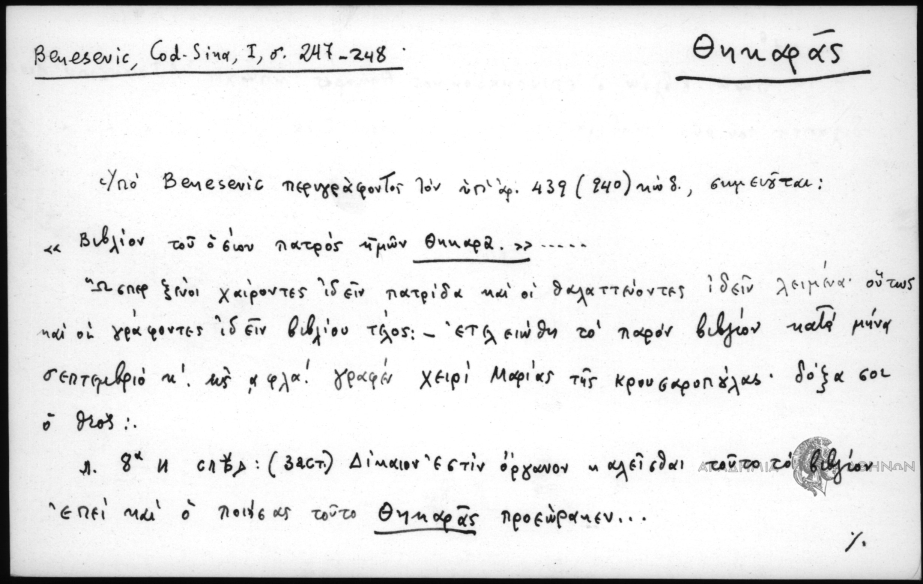 Benesevic, Cod-Sina, I, σ. 247-248.
Θηκαρᾶς
Ὑπό Benesevic περιγράφοντος τόν ὑπ' ἀρ. 439 (940) κώδ., σημειοῦται:
« Βιβλίον τοῦ ὁσίου πατρός ἡμῶν Θηκαρᾶ. » .....
Ὥσπερ ξένοι χαίροντες ἰδεῖν πατρίδα καί οἱ θαλαττεύοντες ἰδεῖν λειμένα· οὕτως
καί οἱ γράφοντες ἰδεῖν βιβλίου τέλος: – ἐτελειώθη τό παρόν βιβλίον κατά μήνα
σεπτεμβριό κ'. τῆς ͵αφλα'. γραφέν χειρί Μαρίας τῆς Κρουσαροπούλας· δόξα σοι
ὁ θεός:.
л. 8ᵃ И : (3аст.) Δίκαιον ἐστίν ὄργανον καλεῖσθαι τοῦτο τό βιβλίον
ἐπεί καί ὁ ποιήσας τοῦτο Θηκαρᾶς προεώρακεν...
ΑΚΑΔΗΜΙΑ ΑΘΗΝΩΝ
%.